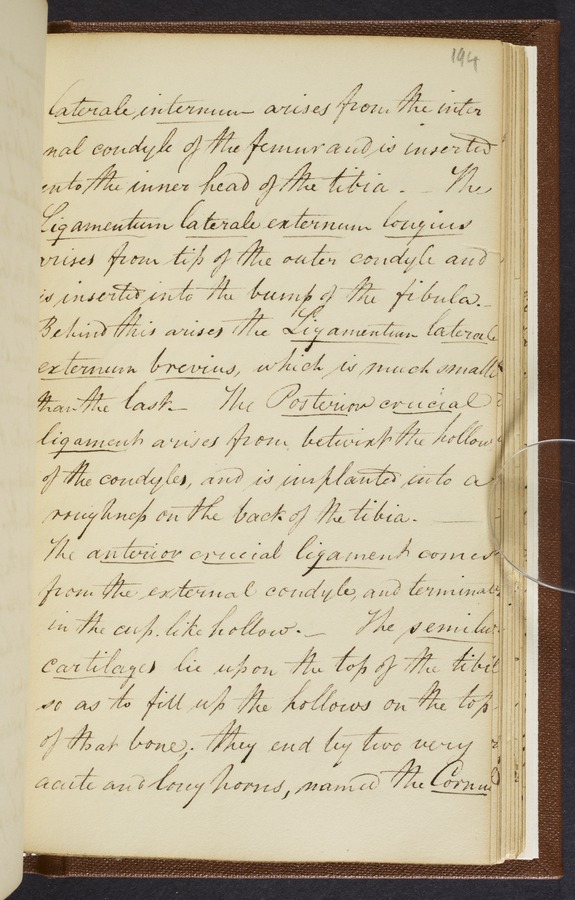 194
laterale internum arises from the inter
nal condyle of the femur and is inserted
into the inner head of the tibia. – The
Ligamentum laterale externum longius
arises from tip of the outer condyle and
is inserted into the bump of the fibula. –
Behind this arises the Ligamentum laterale
externum brevius, which is much smalle
than the last – The Posterior crucial
ligament arises from betwixt the hollow
of the condyles, and is implanted into a
roughness on the back of the tibia. —
The anterior crucial ligament comes
from the external condyle, and terminat
in the cup. like hollow. – The semilu
cartilages lie upon the top of the tibi
so as to fill up the hollows on the top
of that bone; they end by two very
acute and long horns, named the Cornu